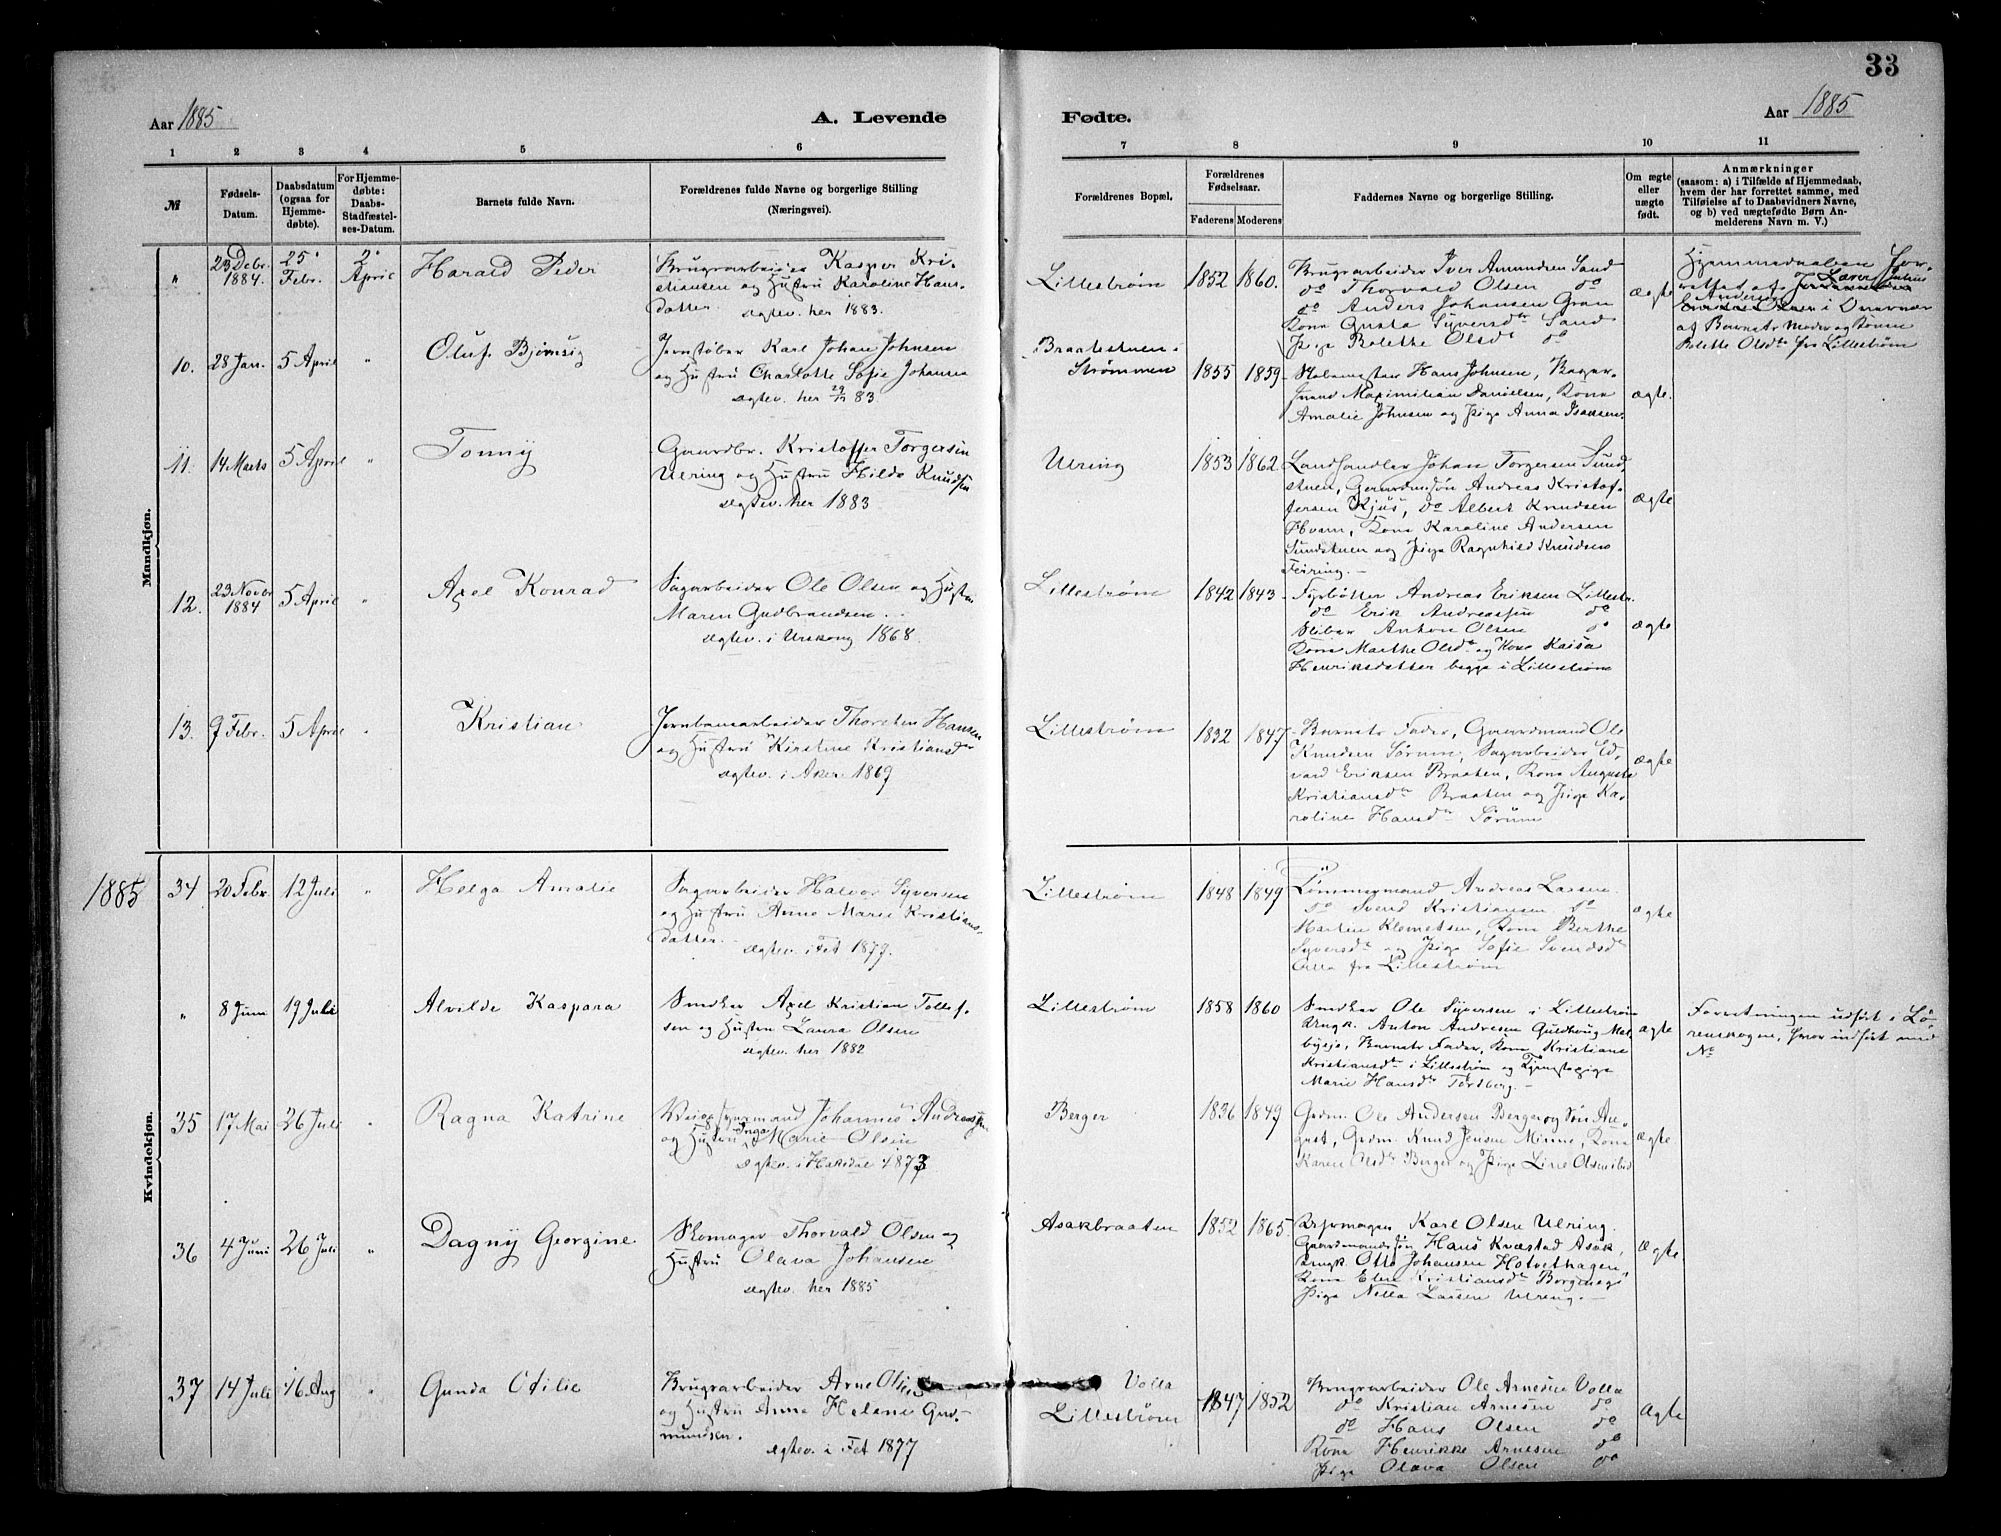 33
Aar 1885
A. Levende
Fødte.
Aar 1885
1 2 3 4 5 6
7 8 9 10 11
№
Fødsels-
Datum.
Daabsdatum
(ogsaa for
Hjemme-
døbte).
For Hjemme-
døbte:
Daabs-
Stadfæstel-
ses-Datum.
Barnets fulde Navn.
Forældrenes fulde Navne og borgerlige Stilling
(Næringsvei).
Forældrenes Bopæl.
Forældrenes
Fødselsaar.
Faderens
Moderens
Faddernes Navne og borgerlige Stilling.
Om ægte
eller
uægte
født.
Anmærkninger
(saasom: a) i Tilfælde af Hjemmedaab,
hvem der har forrettet samme, med
Tilføielse af to Daabsvidners Navne,
og b) ved uægtefødte Børn An-
melderens Navn m. V.)
Mandkjøn.
"
23 Debr.
1884.
25
Febr.
2
April
Harald Peder
Brugsarbeider Kasper Kri-
stiansen og Hustru Karoline Hans-
datter.
ægtev. her 1883.
Lillestrøm
1852
1860.
Brugsarbeider Iver Amundsen Sand
do Thorvald Olsen do
do Anders Johansen Gran
Kona Gusta Syversdr Sand
Pige Bolette Olsdr do
ægte
Hjemmedaaben for-
rettet af Lærer
Andersen
af Barnets Moder og Konen
Bolette Olsdr fra Lillestrøm
10.
28 Jan.
5 April
"
Oluf Bjørnsig
Jernstøber Karl Johan Johnsen
og Hustru Charlotte Sofie Johansen
ægtev. her 83.
Braatestuen
Strømmen
1855
1859
Hans Johnsen, Bager-
svend Maximilian Danielsen, Kona
Amalie Johnsen og Pige Anna Isaksen.
ægte.
11.
14 Marts
5 April
"
Tonny
Gaardbr. Kristoffer Torgersen
Ulring og Hustru Hilda Knudsen
ægtev. her 1883
Ulring
1853
1862.
Landhandler Johan Torgersen Sund-
stuen, Gaardmandsøn Andreas Kristof-
fersen Kjus, do Albert Knudsen
Hvam, Kona Karoline Andersen
Sundstuen og Pige Ragnhild Knudsen
Feiring.
ægte
12.
23 Novbr
1884
5 April
"
Axel Konrad
Sagarbeider Ole Olsen og Hustru
Maren Gudbrandsen.
ægtev. i Urskoug 1868.
Lillestrøm
1842
1843
Fyrbøtter Andreas Eriksen Lillestr.
do Erik Andreassen do
Sliber Anton Olsen do
Kona Marthe Olsdr og Kona Kaisa
Henriksdatter begge i Lillestrøm
ægte
13.
9 Febr.
5 April
"
Kristian
Jernbanearbeider Thorsten Hansen
og Hustru Kirstine Kristiansdr
ægtev. i Aker 1869
Lillestrøm
1832
1847
Barnets Fader, Gaardmand Ole
Knudsen Sørum, Sagarbeider Ed-
vard Eriksen Braaten, Kona Augusta
Kristiansdr Braaten og Pige Ka-
roline Hansdr Sørum
ægte
Kvindekjøn.
1885
34
20 Febr.
12 Juli
"
Helga Amalie
Sagarbeider Halvor Syversen
og Hustru Anne Marie Kristians-
datter.
ægtev. i Fet 1879.
Lillestrøm
1848
1849
Tømmermand Andreas Lassen
do Svend Kristiansen do
Martin Klemetsen, Kona Berthe
Syversdr og Pige Sofie Svendsdr
Alle fra Lillestrøm
ægte
"
8 Juni
19 Juli
Alvilde Kaspara
Snedker Axel Kristian Tollef-
sen og Hustru Laura Olsen
ægtev. her 1882
Lillestrøm
1858
1860
Snedker Ole Syversen i Lillestrøm
Ungk. Anton Andresen Guldhoug
Barnets Fader, Kona Kristiane
Kristiansdr i Lillestrøm og Tjenestepige
Marie Hansdr Tordberg.
ægte
Forretningen udført i Lø-
renskogen, hvor indført med
No
35
17 Mai
26 Juli
"
Ragna Katrine
Johannes Andreassen
og Hustru Inga Marie Olsen
ægtev. i Hakedal 1873
Berger
1836
1849
Grdm. Ole Andersen Berger og Søn Au-
gust, Grdm. Knud Jensen Minne, Kona
Karen Olsdr Berger og Pige Line Olsen ibid
ægte
36
4 Juni
26 Juli
"
Dagny Georgine
Skomager Thorvald Olsen og
Hustru Olava Johansen
ægtev. her 1885
Asakbraaten
1852
1865.
Karl Olsen Ulring.
Gaardmandssøn Hans Kvæstad Asak,
Ungk. Otto Johansen Hotvethagen,
Kona Elen Kristiansdr
Pige Nilla Lassen Ulring.
ægte
37
14 Juli
16 Aug
"
Gunda Otilie
Brugsarbeider Arne Olsen
og Hustru Anna Helene Gud-
mundsen.
ægtev. i Fet 1877
Volla
Lillestrøm
1847
1852
Brugsarbeider Ole Arnesen Volla
do Kristian Arnesen do
do Hans Olsen do
Kona Henrikke Arnesen do
Pige Olava Olsen do
Ægte